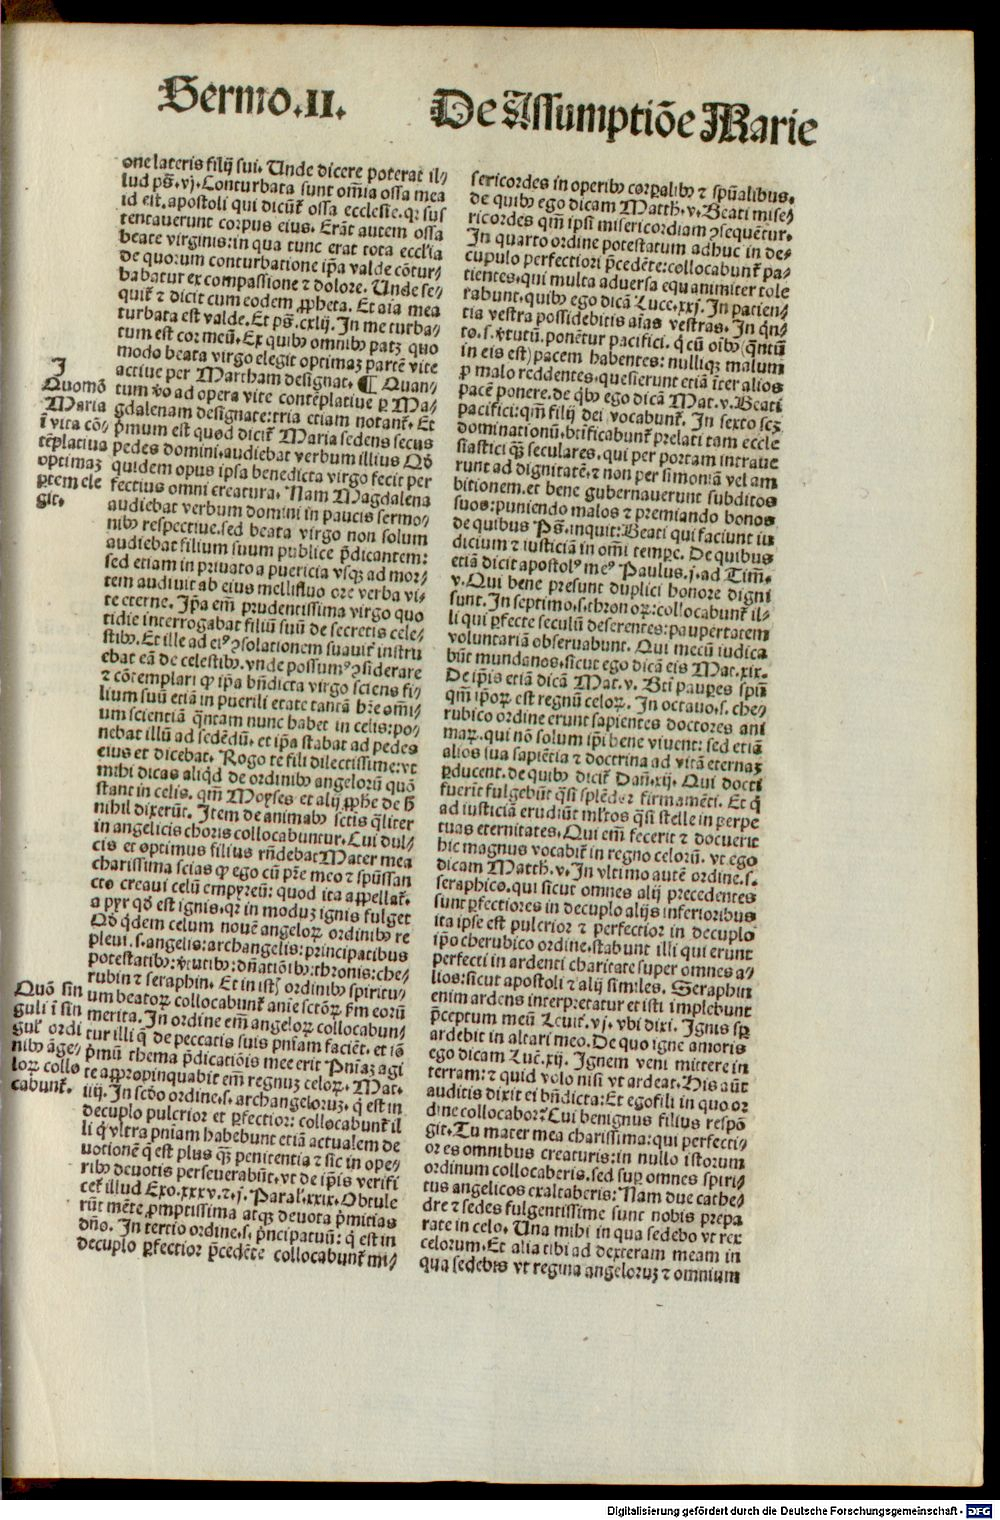 Sermo.II. De Assumptiõe Marie
one lateris filij sui. Unde dicere poterat il⸗
lud ps̃. vj. Conturbata sunt om̃ia ossa mea
id est. apostoli qui dicũt᷑ ossa ecclesie. qꝛ sus
tentauerunt corpus eius. Erãt autem ossa
beate virginis: in qua tunc erat tota eccl'ia
de quorum conturbatione ip̃a valde cõtur⸗
babatur ex compassione ⁊ dolore. Unde se⸗
quit᷑ ⁊ dicit cum eodem ꝓpheta. Et aĩa mea
turbata est valde. Et ps̃. cxlij. In me turba⸗
tum est coꝛ meũ. Ex quibꝰ omnibꝰ patꝫ quo
modo beata virgo elegit optimaꝫ partẽ vite
actiue per Martham designat. ¶ Quan⸗
tum v̾o ad opera vite contẽplatiue ꝑ Ma⸗
gdalenam designate: tria etiam notant᷑. Et
p̃mum est quod dicit᷑ Maria sedens secus
pedes domini. audiebat verbum illius Qd̾
quidem opus ipsa benedicta virgo fecit per
fectius omni creatura. Nam Magdalena
audiebat verbum domini in paucis sermo⸗
nibꝰ respectiue. sed beata virgo non solum
audiebat filium suum publice p̃dicantem:
sed etiam in priuato a puericia vsqꝫ ad mor⸗
tem audiuit ab eius mellifluo ore verba vi⸗
te eterne. Ip̃a em̃ prudentissima virgo quo
tidie interrogabat filiũ suũ de secretis cele⸗
stibꝰ. Et ille ad eiꝰ ꝯsolationem suauit᷑ instru
ebat eã de celestibꝰ. vnde possumꝰ ꝯsiderare
⁊ cõtemplari ꝙ ip̃a bñdicta virgo sciens fi⸗
lium suũ etiã in puerili etate tantã hr̃e om̃i⸗
um scientiã q̃ntam nunc habet in celis: po⸗
nebat illũ ad sedẽdũ. et ip̃a stabat ad pedes
eius et dicebat. Rogo te fili dilectissime: vt
mihi dicas aliqd̾ de ordinibꝰ angelorũ quõ
stant in celis. qm̃ Moyses et alij ꝓph̃e de h̾
nihil dixerũt. Item de animabꝰ sctis q̃liter
in angelicis choris collocabuntur. Cui dul⸗
cis et optimus filius rñdebat Mater mea
charissima scias ꝙ ego cũ pr̃e meo ⁊ sp̃ussan
cto creaui celũ empyreũ: quod ita appellat᷑.
a pyr qd̾ est ignis. qꝛ in moduꝫ ignis fulget
Qd̾ q̃dem celum nouẽ angeloꝝ ordinibꝰ re
pleui. s. angelis: archangelis: principatibus
potestatibꝰ: v̾tutibꝰ: dñatiõibꝰ: thronis: che⸗
rubin ⁊ seraphin. Et in istꝭ ordinibꝰ spiritu⸗
um beatoꝝ collocabunt᷑ anie sctõꝝ fm eorũ
merita. In ordine em̃ angeloꝝ collocabun⸗
tur illi q̃ de peccatis suis pñiam faciẽt. et iõ
p̃mũ thema p̃dicatiõis mee erit Pñiaꝫ agi
te appropinquabit em̃ regnuꝫ celoꝝ. Mat.
iiij. In scđo ordine. s. archangeloruꝫ. q̃ est in
decuplo pulcrior et ꝑfectior: collocabunt᷑ il
li q̃ vltra pniam habebunt etiã actualem de
uotionẽ q̃ est plus qꝫ penitentia ⁊ sic in ope⸗
ribꝰ deuotis perseuerabũt. vt de ip̃is verifi
cet᷑ illud Exo. xxxv. ⁊. j. Paral'. xxix. Obtule
rũt mẽte ꝓmptissima atqꝫ deuota p̃mitias
dño. In tertio ordine. s. p̃ncipatuũ: q̃ est in
decuplo ꝑfectior p̃cedẽte collocabunt᷑ mi⸗
I
Quomõ
Maria
ĩ vita cõ⸗
tẽplatiua
optimaꝫ
ꝑtem ele
git.
Quõ sin
guli ĩ sin
gul' ordi
nibꝰ ãge⸗
loꝝ collo
cabunt᷑.
sericordes in operibꝰ corꝑalibꝰ ⁊ sp̃ualibus.
de quibꝰ ego dicam Matth. v. Beati mise⸗
ricordes qm̃ ipsi misericordiam ꝯsequẽtur.
In quarto ordine potestatum adhuc in de⸗
cupulo perfectiori p̃cedẽte: collocabunt᷑ pa⸗
tientes. qui multa aduersa equanimiter tole
rabunt. quibꝰ ego dicã Luce. xxj. In patien⸗
tia vestra possidebitis aĩas vestras. In q̃n⸗
to. s. v̾tutũ. ponẽtur pacifici. q̃ cũ oĩbꝰ (q̃ntũ
in eis est) pacem habentes: nulliqꝫ malum
ꝓ malo reddentes. quesierunt etiã ĩter alios
pacẽ ponere. de q̃bꝰ ego dicã Mat. v. Beati
pacifici: qm̃ filij dei vocabunt᷑. In sexto scꝫ
dominationũ. btĩficabunt᷑ prelati tam eccle
siastici qꝫ seculares. qui per portam intraue
runt ad dignitatẽ. ⁊ non per simoniã vel am
bitionem. et bene gubernauerunt subditos
suos: puniendo malos ⁊ premiando bonos
de quibus Ps̃. inquit: Beati qui faciunt iu
dicium ⁊ iusticiã in om̃i tempe. De quibus
etiã dicit apostolꝰ meꝰ Paulus. j. ad Tim̃.
v. Qui bene presunt duplici honore digni
sunt. In septimo. s. thronoꝝ: collocabunt᷑ il⸗
li qui ꝑfecte seculũ deserentes: paupertatem
voluntariã obseruabunt. Qui mecũ iudica
bũt mundanos. sicut ego dicã eis Mat. xix.
De ip̃is etiã dicã Mat. v. Bt̃i pauꝑes sp̃ũ
qm̃ ip̃oꝝ est regnũ celoꝝ. In octauo. s. che⸗
rubico ordine erunt sapientes doctores ani
maꝝ. qui nõ solum ip̃i bene viuent: sed etiã
alios sua sapiẽtia ⁊ doctrina ad vitã eternaꝫ
ꝑducent. de quibꝰ dicit᷑ Dañ. xij. Qui docti
fuerĩt fulgebũt q̃si splẽdor firmamẽti. Et q̃
ad iusticiã erudiũt ml'tos q̃si stelle in ꝑerpe
tuas eternitates. Qui em̃ fecerit ⁊ docuerit
hic magnus vocabit᷑ in regno celorũ. vt ego
dicam Matth. v. In vltimo autẽ ordine. s.
seraphico. qui sicut omnes alij precedentes
sunt ꝑfectiores in decuplo alijs inferioribus
ita ipse est pulcrior ⁊ perfectior in decuplo
ip̃o cherubico ordine. stabunt illi qui erunt
perfecti in ardenti charitate super omnes a⸗
lios: sicut apostoli ⁊ alij similes. Seraphin
enim ardens interpretatur et isti implebunt
p̃ceptum meũ Leuit̃. vj. vbi dixi. Ignis sꝑ
ardebit in altari meo. De quo igne amoris
ego dicam Luc̃. xij. Ignem veni mittere in
terram: ⁊ quid volo nisi vt ardeat. His aũt
auditis dixit ei bñdicta: Et ego fili in quo or
dine collocabor? Cui benignus filius respõ
git. Tu mater mea charissima: qui perfecti⸗
or es omnibus creaturis: in nullo istorum
ordinum collocaberis. sed suꝑ omnes spiri⸗
tus angelicos exaltaberis: Nam due cathe⸗
dre ⁊ sedes fulgentissime sunt nobis prepa
rate in celo. Una mihi in qua sedebo vt rex
celorum. Et alia tibi ad dexteram meam in
qua sedebis vt regina angeloruꝫ ⁊ omnium
Digitalisierung gefördert durch die Deutsche Forschungsgemeinschaft - DFG